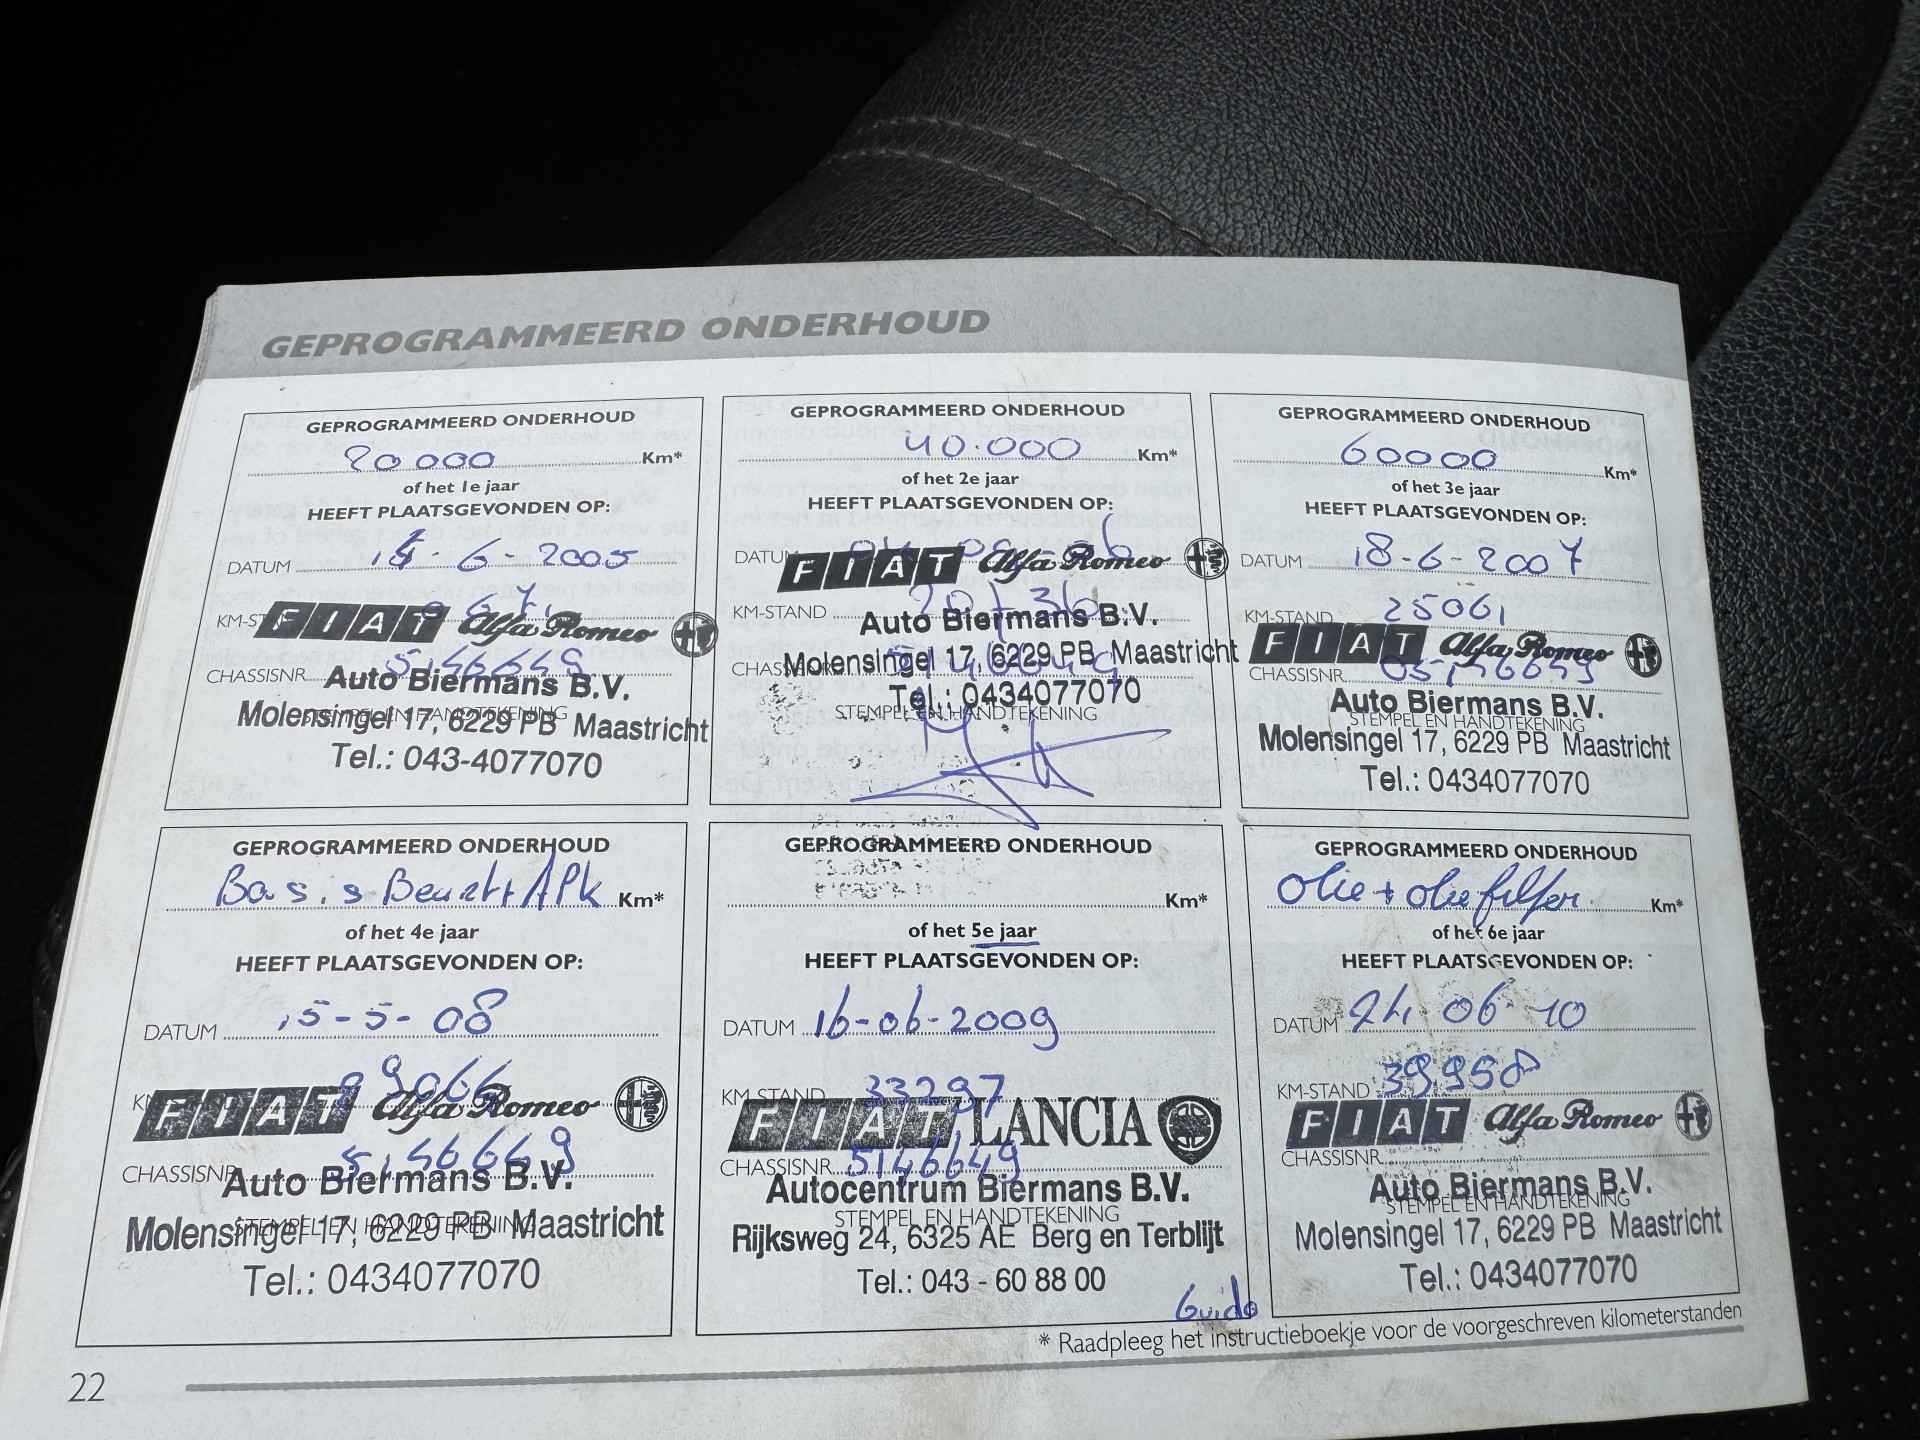 GEPROGRAMMEERD ONDERHOUD
GEPROGRAMMEERD ONDERHOUD
20000 Km*
of het 1e jaar
HEEFT PLAATSGEVONDEN OP:
DATUM 14-6-2005
FIAT Alfa Romeo
CHASSISNR 5146649
Auto Biermans B.V.
STEMPEL EN HANDTEKENING
Molensingel 17, 6229 PB Maastricht
Tel.: 043-4077070
GEPROGRAMMEERD ONDERHOUD
40.000 Km*
of het 2e jaar
HEEFT PLAATSGEVONDEN OP:
DATUM
FIAT Alfa Romeo
KM-STAND
Auto Biermans B.V.
Molensingel 17, 6229 PB Maastricht
CHASSISNR
Tel.: 0434077070
STEMPEL EN HANDTEKENING
GEPROGRAMMEERD ONDERHOUD
60000 Km*
of het 3e jaar
HEEFT PLAATSGEVONDEN OP:
DATUM 18-6-2007
KM-STAND 25061
FIAT Alfa Romeo
CHASSISNR 05146649
Auto Biermans B.V.
STEMPEL EN HANDTEKENING
Molensingel 17, 6229 PB Maastricht
Tel.: 0434077070
GEPROGRAMMEERD ONDERHOUD
Basis Beurt+APk Km*
of het 4e jaar
HEEFT PLAATSGEVONDEN OP:
DATUM 15-5-08
FIAT Alfa Romeo
CHASSISNR 5146649
Auto Biermans B.V.
STEMPEL EN HANDTEKENING
Molensingel 17, 6229 PB Maastricht
Tel.: 0434077070
GEPROGRAMMEERD ONDERHOUD
Km*
of het 5e jaar
HEEFT PLAATSGEVONDEN OP:
DATUM 16-06-2009
KM-STAND 33297
FIAT LANCIA
CHASSISNR 5146649
Autocentrum Biermans B.V.
STEMPEL EN HANDTEKENING
Rijksweg 24, 6325 AE Berg en Terblijt
Tel.: 043 - 60 88 00
Guido
GEPROGRAMMEERD ONDERHOUD
Olie + oliefilter Km*
of het 6e jaar
HEEFT PLAATSGEVONDEN OP:
DATUM 24 06-10
KM-STAND 39958
FIAT Alfa Romeo
CHASSISNR
Auto Biermans B.V.
STEMPEL EN HANDTEKENING
Molensingel 17, 6229 PB Maastricht
Tel.: 0434077070
* Raadpleeg het instructieboekje voor de voorgeschreven kilometerstanden
22